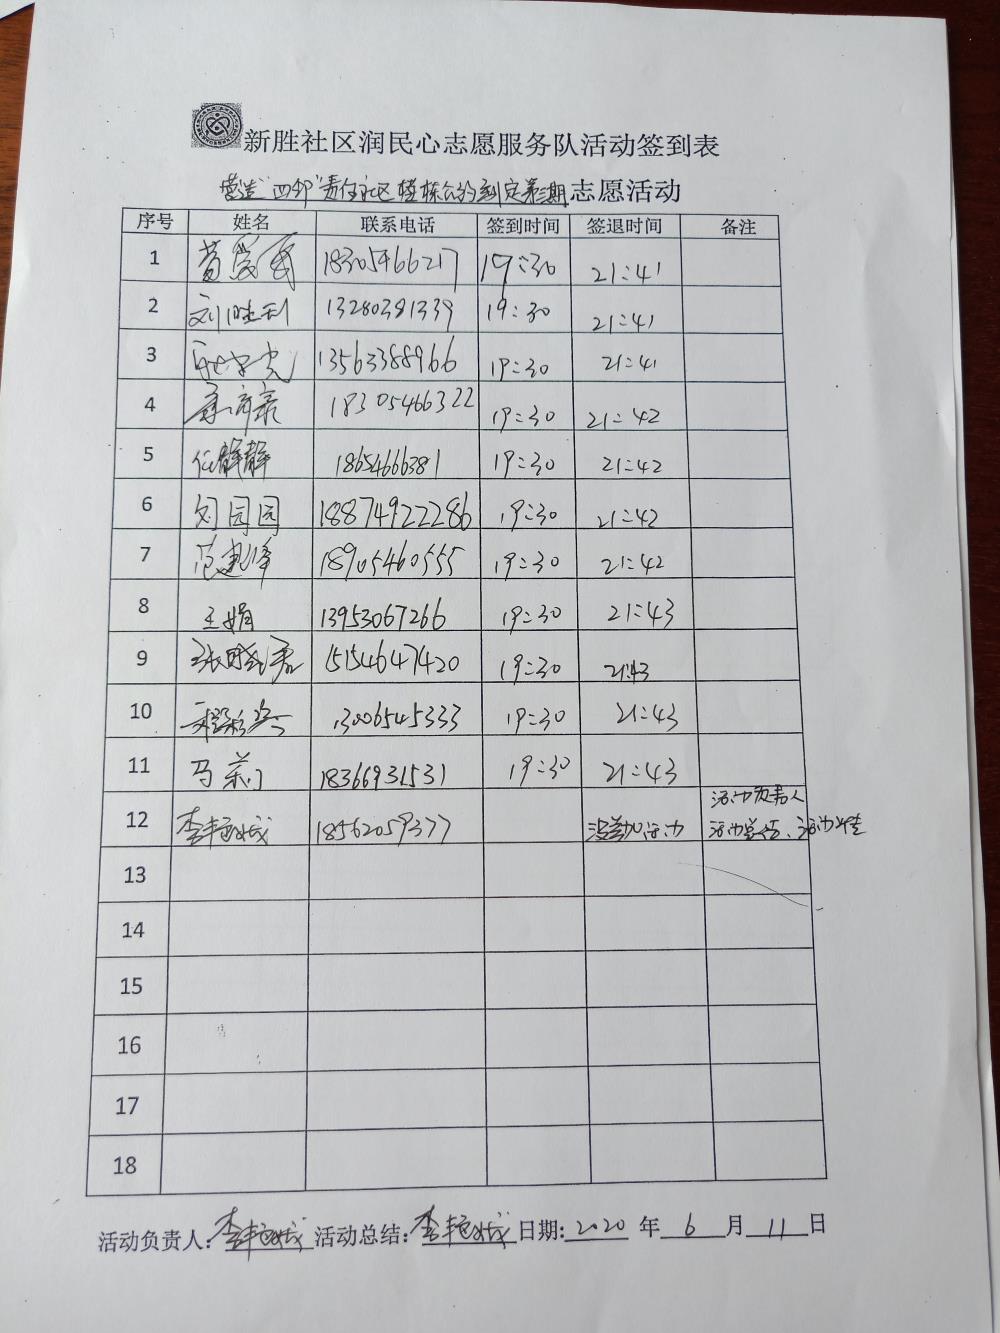 新胜社区润民心志愿服务队活动签到表
营造"四邻"责任社区楼栋公约制定第三期志愿活动
序号 姓名 联系电话 签到时间 签退时间 备注
1 18305466217 19:30 21:41
2 刘胜利 13280381339 19:30 21:41
3 13563388966 19:30 21:41
4 18305466322 19:30 21:42
5 任静静 18654666381 19:30 21:42
6 刘园园 18874922286 19:30 21:42
7 范建峰 18905460555 19:30 21:42
8 王娟 13953067266 19:30 21:43
9 张 15154647420 19:30 21:43
10 13006545333 19:30 21:43
11 马莉 18366931531 19:30 21:43
活动负责人
12 李艳城 18562059377 没参加活动 活动总结、活动
13
14
15
16
17
18
活动负责人:李艳城 活动总结:李艳城 日期:2020 年 6 月 11 日